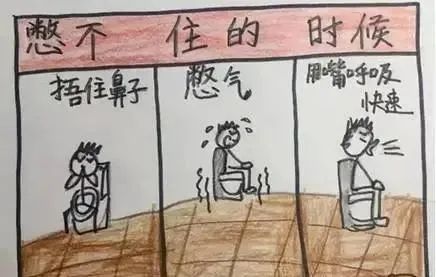 憋不住的时候
捂住鼻子
憋气
用嘴呼吸
快速